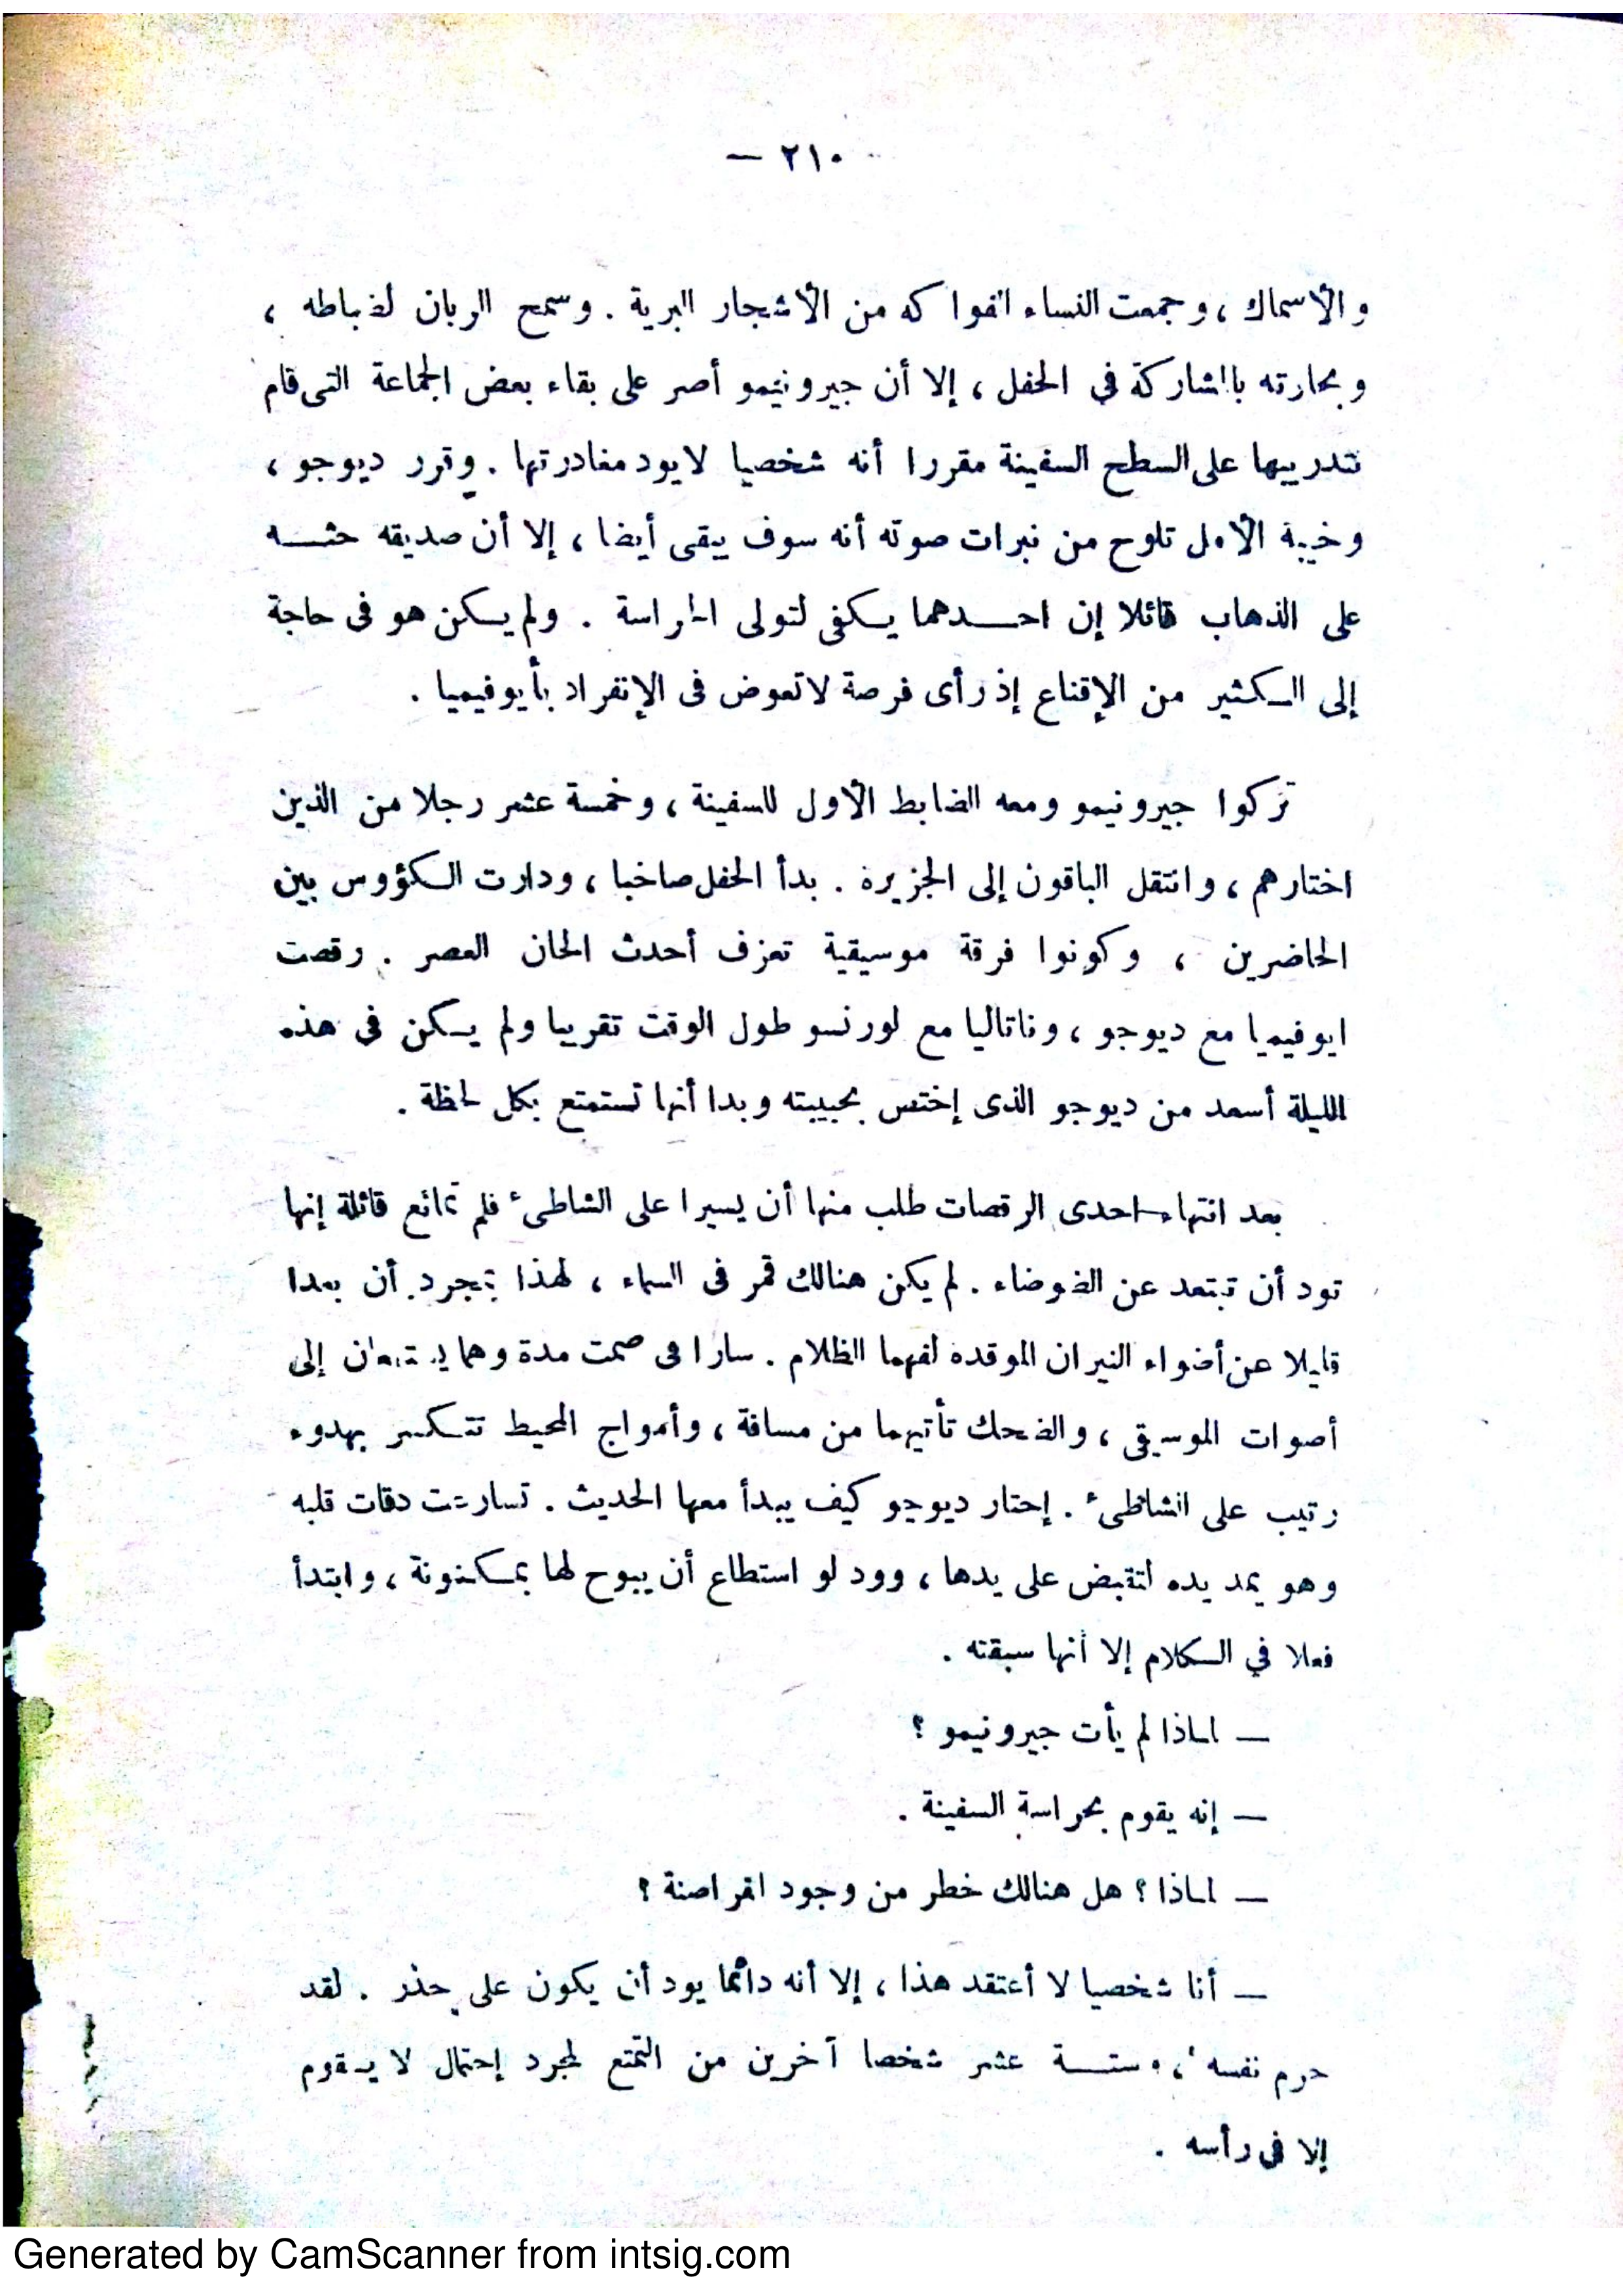 — ٢١٠ —
والأسماك ، وجمعت النساء الفواكه من الأشجار البرية . وسمح الربان لضباطه ،
وبحارته بالمشاركة في الحفل ، إلا أن جيرونيمو أصر على بقاء بعض الجماعة التى قام
بتدريبها على السطح السفينة مقررا أنه شخصيا لايود مغادرتها . وقرر ديوجو ،
وخيبة الأمل تلوح من نبرات صوته أنه سوف يبقى أيضا ، إلا أن صديقه حثه
على الذهاب قائلا إن احدهما يكفى لتولى الحراسة . ولم يكن هو فى حاجة
إلى الكثير من الإقناع إذ رأى فرصة لاتعوض فى الإنفراد بأيوفيميا .
تركوا جيرونيمو ومعه الضابط الأول للسفينة ، وخمسة عشر رجلا من الذين
اختارهم ، وانتقل الباقون إلى الجزيرة . بدأ الحفل صاخبا ، ودارت الكؤوس بين
الحاضرين ، وكونوا فرقة موسيقية تعزف أحدث الحان العصر . رقصت
ايوفيميا مع ديوجو ، وناتاليا مع لورنسو طول الوقت تقريبا ولم يكن فى هذه
الليلة أسعد من ديوجو الذى إختص بحبيبته وبدا أنها تستمتع بكل لحظة .
بعد انتهاء احدى الرقصات طلب منها أن يسيرا على الشاطىء فلم تمانع قائلة إنها
تود أن تبتعد عن الضوضاء . لم يكن هنالك قمر فى السماء ، لهذا بمجرد أن بعدا
قليلا عن أضواء النيران الموقده لفهما الظلام . سارا فى صمت مدة وهما يستمعان إلى
أصوات الموسيقى ، والضحك تأتيهما من مسافة ، وأمواج المحيط تتكسر بهدوء
رتيب على الشاطىء . إحتار ديوجو كيف يبدأ معها الحديث . تسارعت دقات قلبه
وهو يمد يده لتقبض على يدها ، وود لو استطاع أن يبوح لها بمكنونة ، وابتدأ
فعلا في الكلام إلا أنها سبقته .
— لماذا لم يأت جيرونيمو ؟
— إنه يقوم بحراسة السفينة .
— لماذا ؟ هل هنالك خطر من وجود القراصنة ؟
— أنا شخصيا لا أعتقد هذا ، إلا أنه دائما يود أن يكون على حذر . لقد
حرم نفسه ، وستة عشر شخصا آخرين من التمتع لمجرد إحتمال لا يقوم
إلا فى رأسه .
Generated by CamScanner from intsig.com